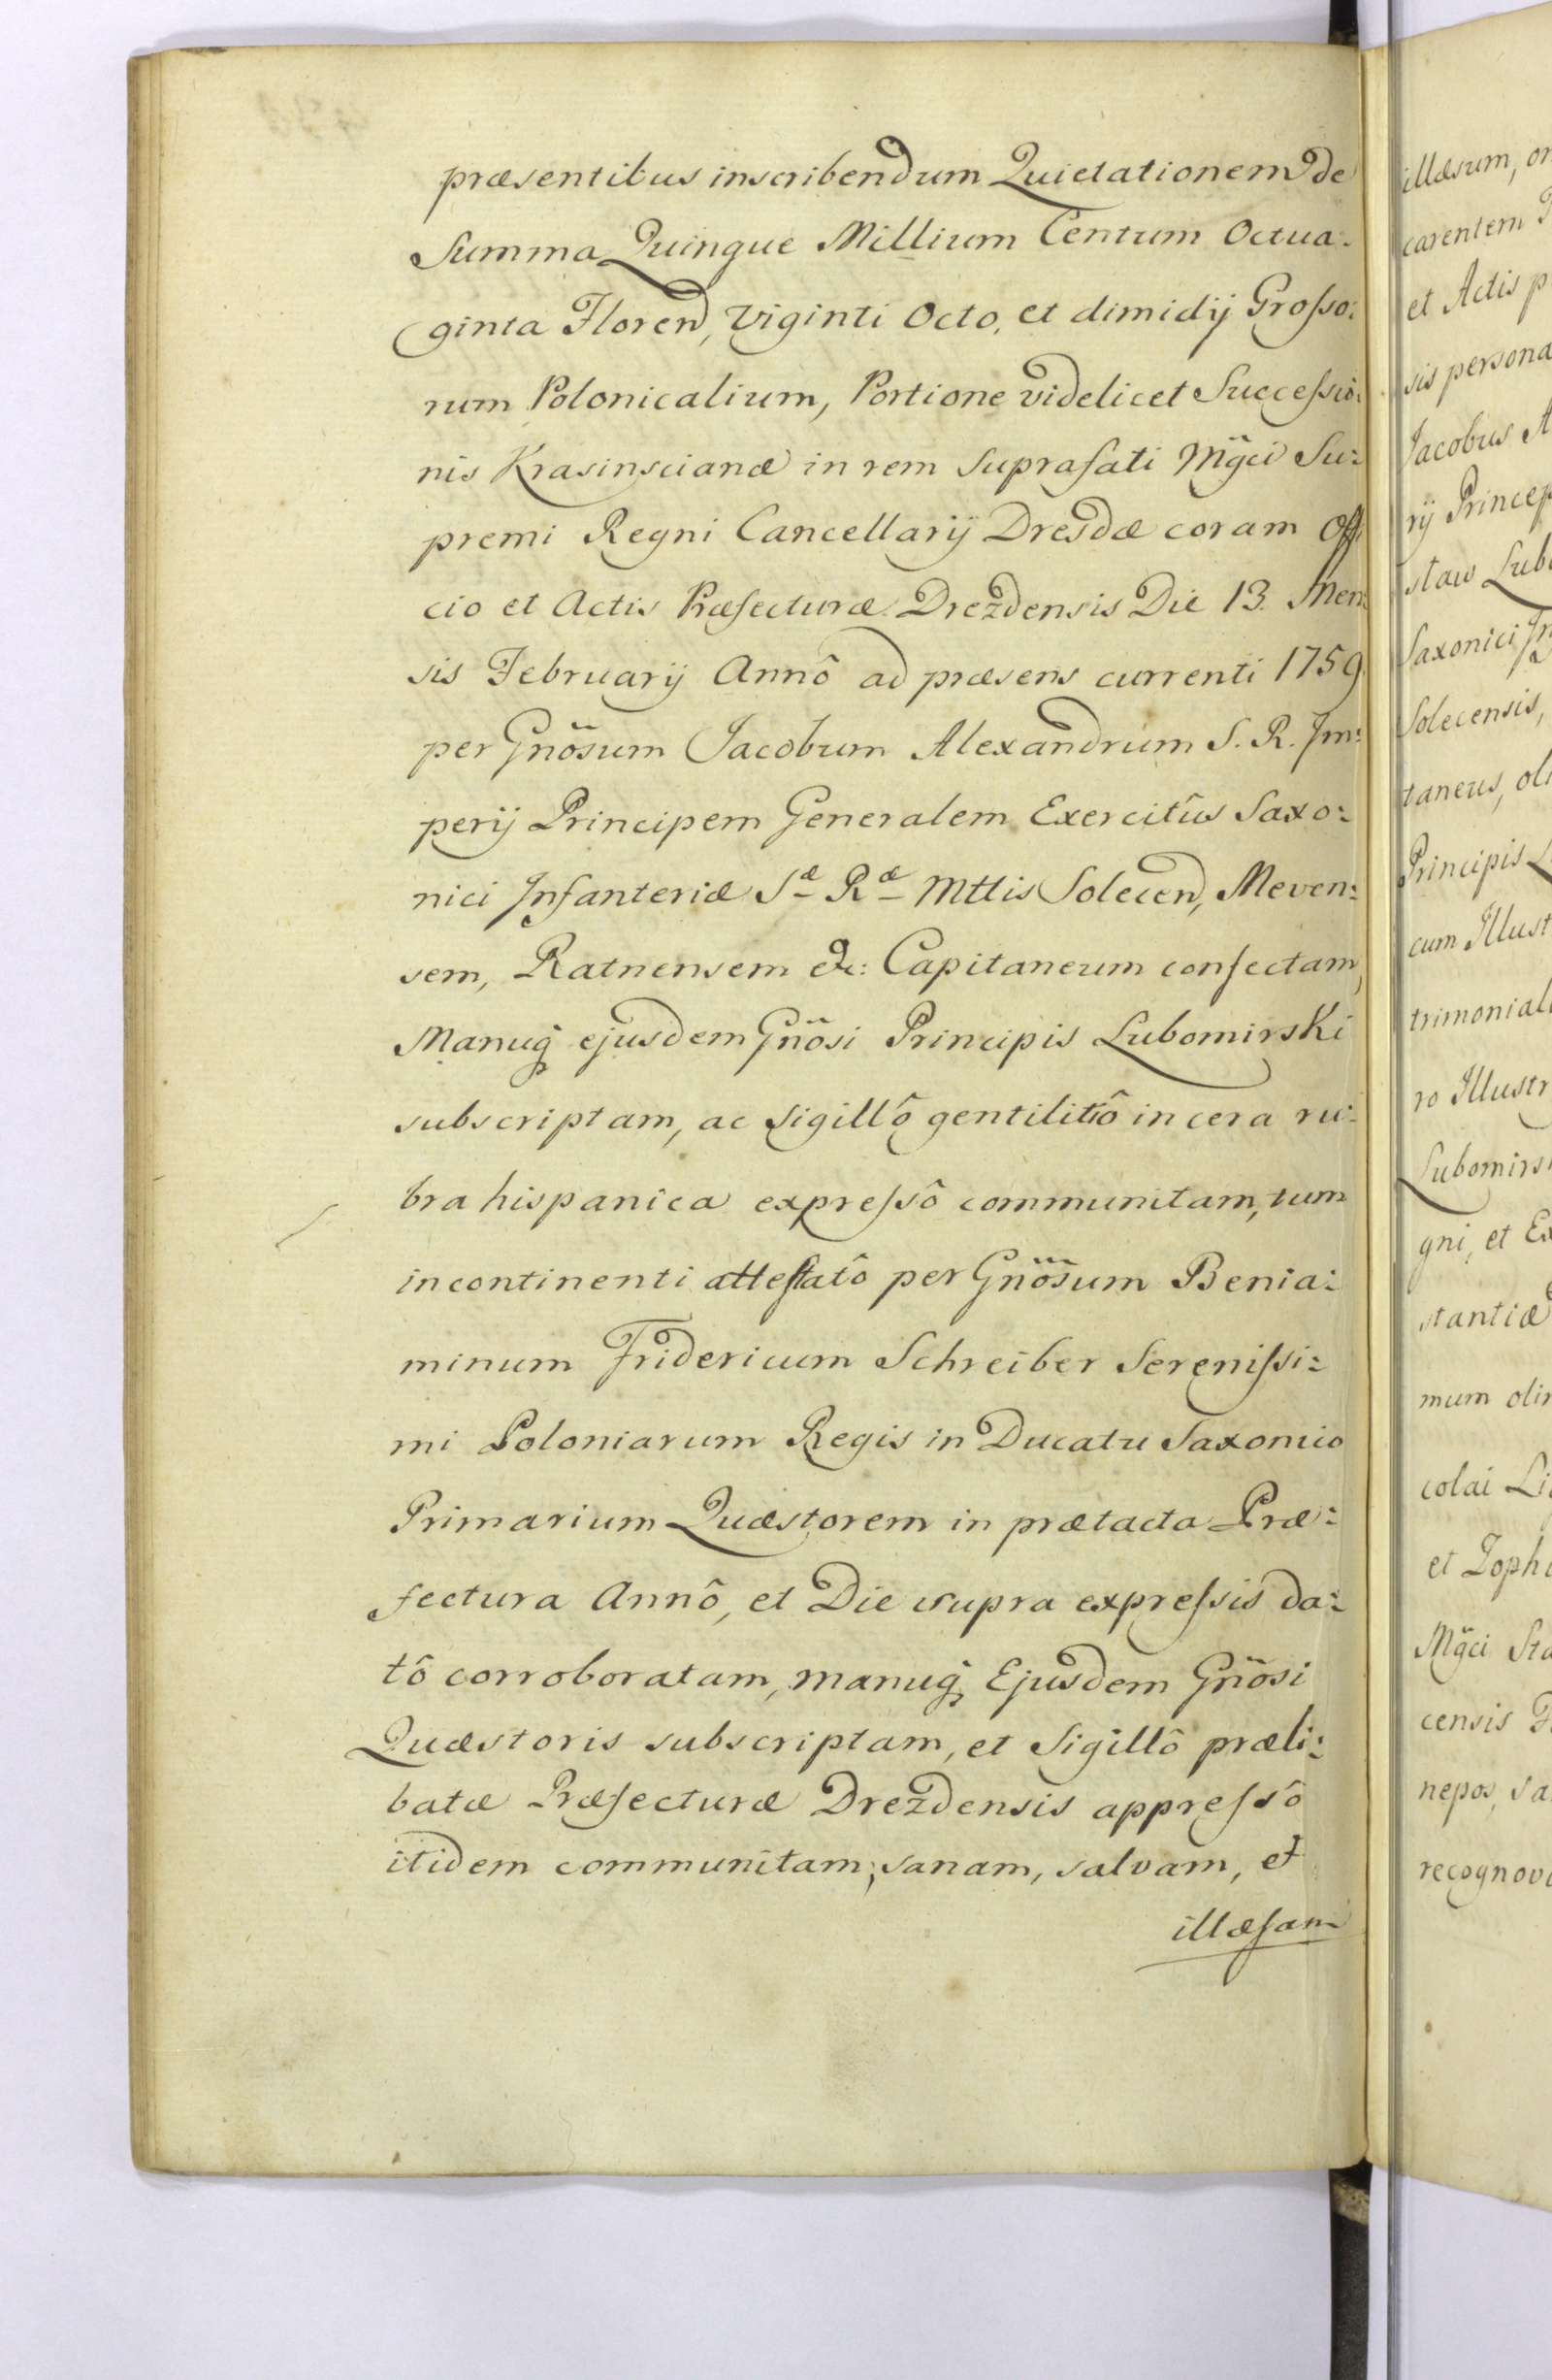 præsentibus inscribendum Quietationem de
Summa Quinque Millium Centum Octua:
ginta Floren, Viginti Octo, et dimidij Grosso:
rum Polonicalium, Portione videlicet Successio:
nis Krasinscianæ in rem suprafati Mg̃ci Su:
premi Regni Cancellarij Dresdæ coram Offi
cio et Actis Præfecturæ Drezdensis Die 13. Men
sis Februarij Annô ad præsens currenti 1759.
per Gnõsum Jacobum Alexandrum S. R. Im:
perij Principem Generalem Exercitûs Saxo:
nici Infanteriæ Sæ Ræ Mttis Solecen, Meven:
sem, Ratnensem &c: Capitaneum confectam,
Manuq̃ ejusdem Gnõsi Principis Lubomirski
subscriptam, ac sigillô gentilitiô in cera ru:
bra hispanica expressô communitam, tum
incontinenti attestatô per Gnõsum Benia:
minum Fridericum Schreiber Serenissi:
mi Poloniarum Regis in Ducatu Saxonico
Primarium Quæstorem in prætacta Præ:
fectura Annô, et Die supra expressis da:
tô corroboratam, manuq̃ Ejusdem Gnõsi
Quæstoris subscriptam, et Sigillô præli:
batæ Præfecturæ Drezdensis appressô
itidem communitam, sanam, salvam, et
illæsam
illæsum, om
carentem
et Actis p
sis persona
Jacobus A
rij Princep
staw Lubo
Saxonici In
Solecensis,
taneus, oli
Principis L
cum Illust
trimoniali
ro Illustr
Lubomirs
gni, et Ex
stantiæ
mum olim
colai Li
et Zophi
Mg̃ci Sta
censis
nepos, sa
recognov